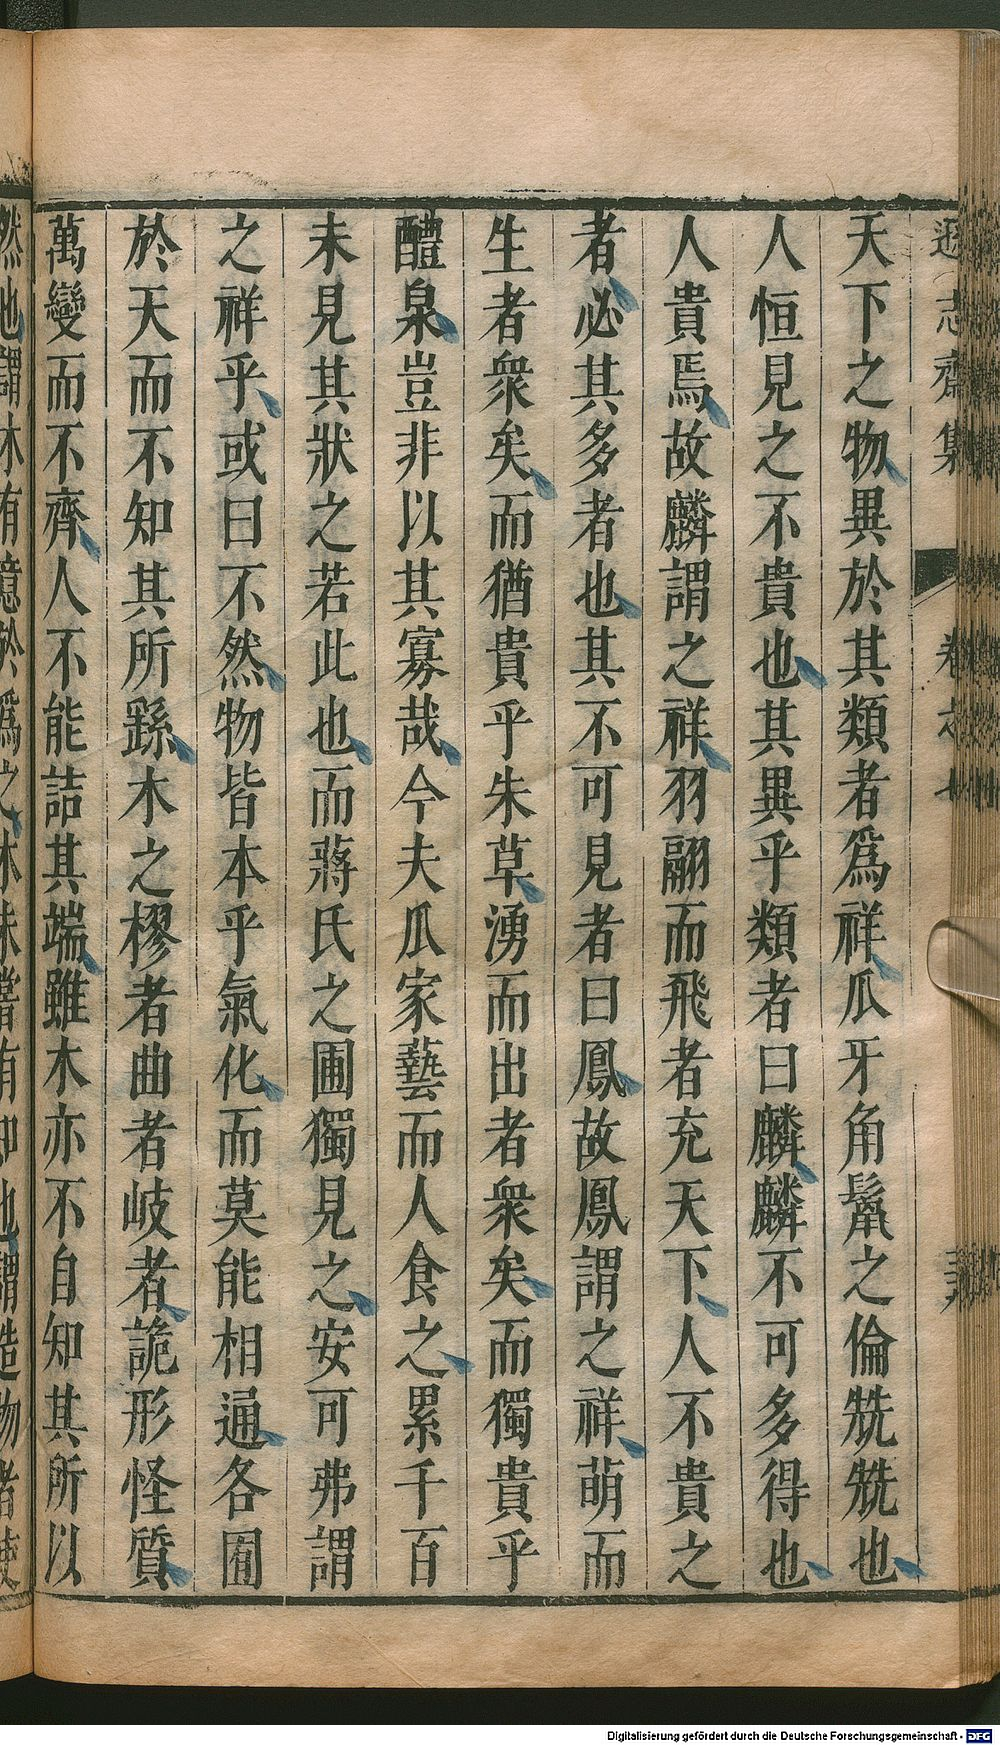 遜志齋集 卷之七
天下之物異於其類者爲祥瓜牙角鬣之倫兟兟也
人恒見之不貴也其異乎類者曰麟麟不可多得也
人貴焉故麟謂之祥羽翮而飛者充天下人不貴之
者必其多者也其不可見者曰鳳故鳳謂之祥萌而
生者衆矣而猶貴乎朱草湧而出者衆矣而獨貴乎
醴泉豈非以其寡哉今夫瓜家藝而人食之累千百
未見其狀之若此也而蔣氏之圃獨見之安可弗謂
之祥乎或曰不然物皆本乎氣化而莫能相通各囿
於天而不知其所繇木之樛者曲者岐者詭形怪質
萬變而不齊人不能詰其端雖木亦不自知其所以
然也謂木有意於爲之木未嘗有知也謂造物者使
Digitalisierung gefördert durch die Deutsche Forschungsgemeinschaft - DFG